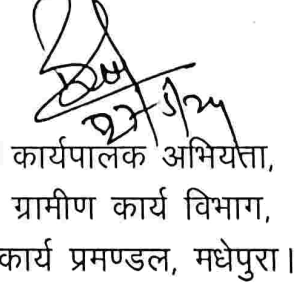 कार्यपालक अभियंता,
ग्रामीण कार्य विभाग,
कार्य प्रमण्डल, मधेपुरा।